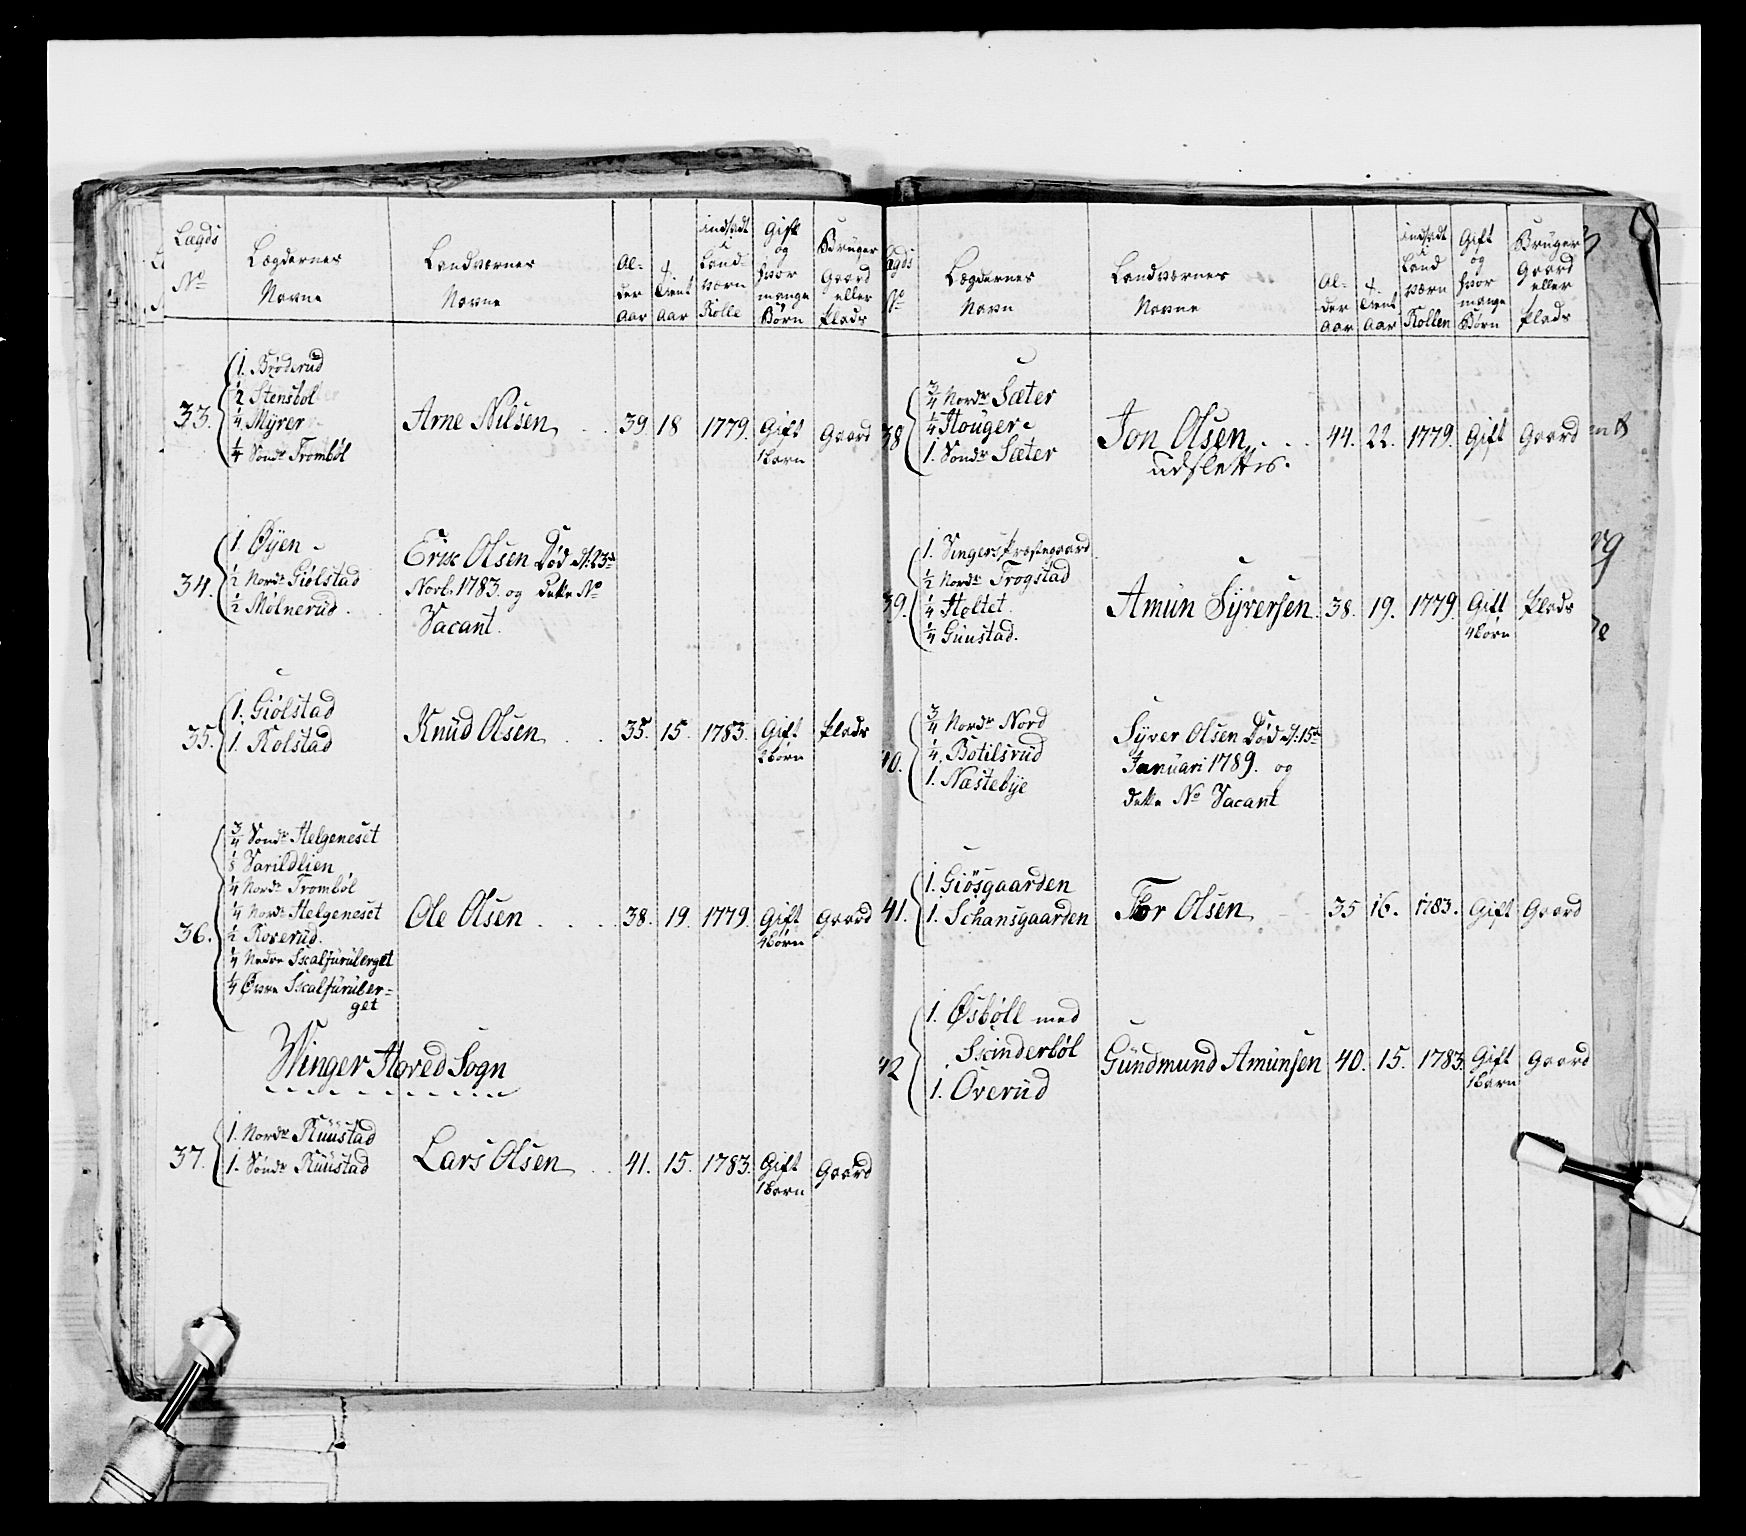 Lægds
No
Lægdernes
Navne
Landværnes
Navne
Al-
der
Aar
Tient
Aar
indsadt
i
Land-
værn
Rolle
Gift
og
hvor
mange
Børn
Bruger
Gaard
eller
Plads
33.
1. Brøderud
½ Stensbøl
¼ Myrer
¼ Sondr Trombøl
Arne Nilsen 39 18 1779. Gift Gaard
1 Barn
34.
1. Øyen
½ Nordr Giølstad
½ Mølnerud
Erik Olsen Død d: 23de
Novb. 1783. og dette No
Vacant.
35.
1. Giølstad
1. Kolstad
Knud Olsen 35. 15. 1783. Gift Plads
2 Børn
36.
¾ Sondr Helgeneset
⅛ Varildlien
¼ Nordr Trombøl
¼ Nordr Helgeneset
½ Roverud.
¼ Nedre Skalfuruberget
¼ Øvre Skalfuruber-
get
Ole Olsen 38. 19. 1779. Gift Gaard
4 Børn
Winger Hoved Sogn
37.
1. Nordr Ruustad
1. Søndr Ruustad
Lars Olsen 41. 15. 1783. Gift Gaard
1 Barn
Lægds
No
Lægdernes
Navn
Landværnes
Navne
Al-
der
Aar
Tient
Aar
indsadt
i
Land
værn
Rollen
Gift
og
hvor
mange
Børn
Bruger
Gaard
eller
Plads
38
¾ Nordr Sæter
¼ Houger
1. Sondr Sæter
Jon Olsen 44. 22. 1779. Gift Gaard
udslettes.
39.
1. Vingers Præstegaard
½ Nordr Trogstad
¼ Holtet.
¼ Guustad.
Amun Syversen 38. 19. 1779. Gift Plads
4 Børn
40.
¾ Nordr Nord
¼ Botilsrud
1. Næstebye
Syver Olsen Død d: 15de
Januari 1789. og
dette No Vacant
41.
1. Giøsgaarden
1. Schansgaarden
Tor Olsen 35 16. 1783. Gift Gaard
42
1. Øsbøll med
Skinderbøl
1. Overud
Gundmund Amunsen 40. 15. 1783. Gift Gaard
1 Barn